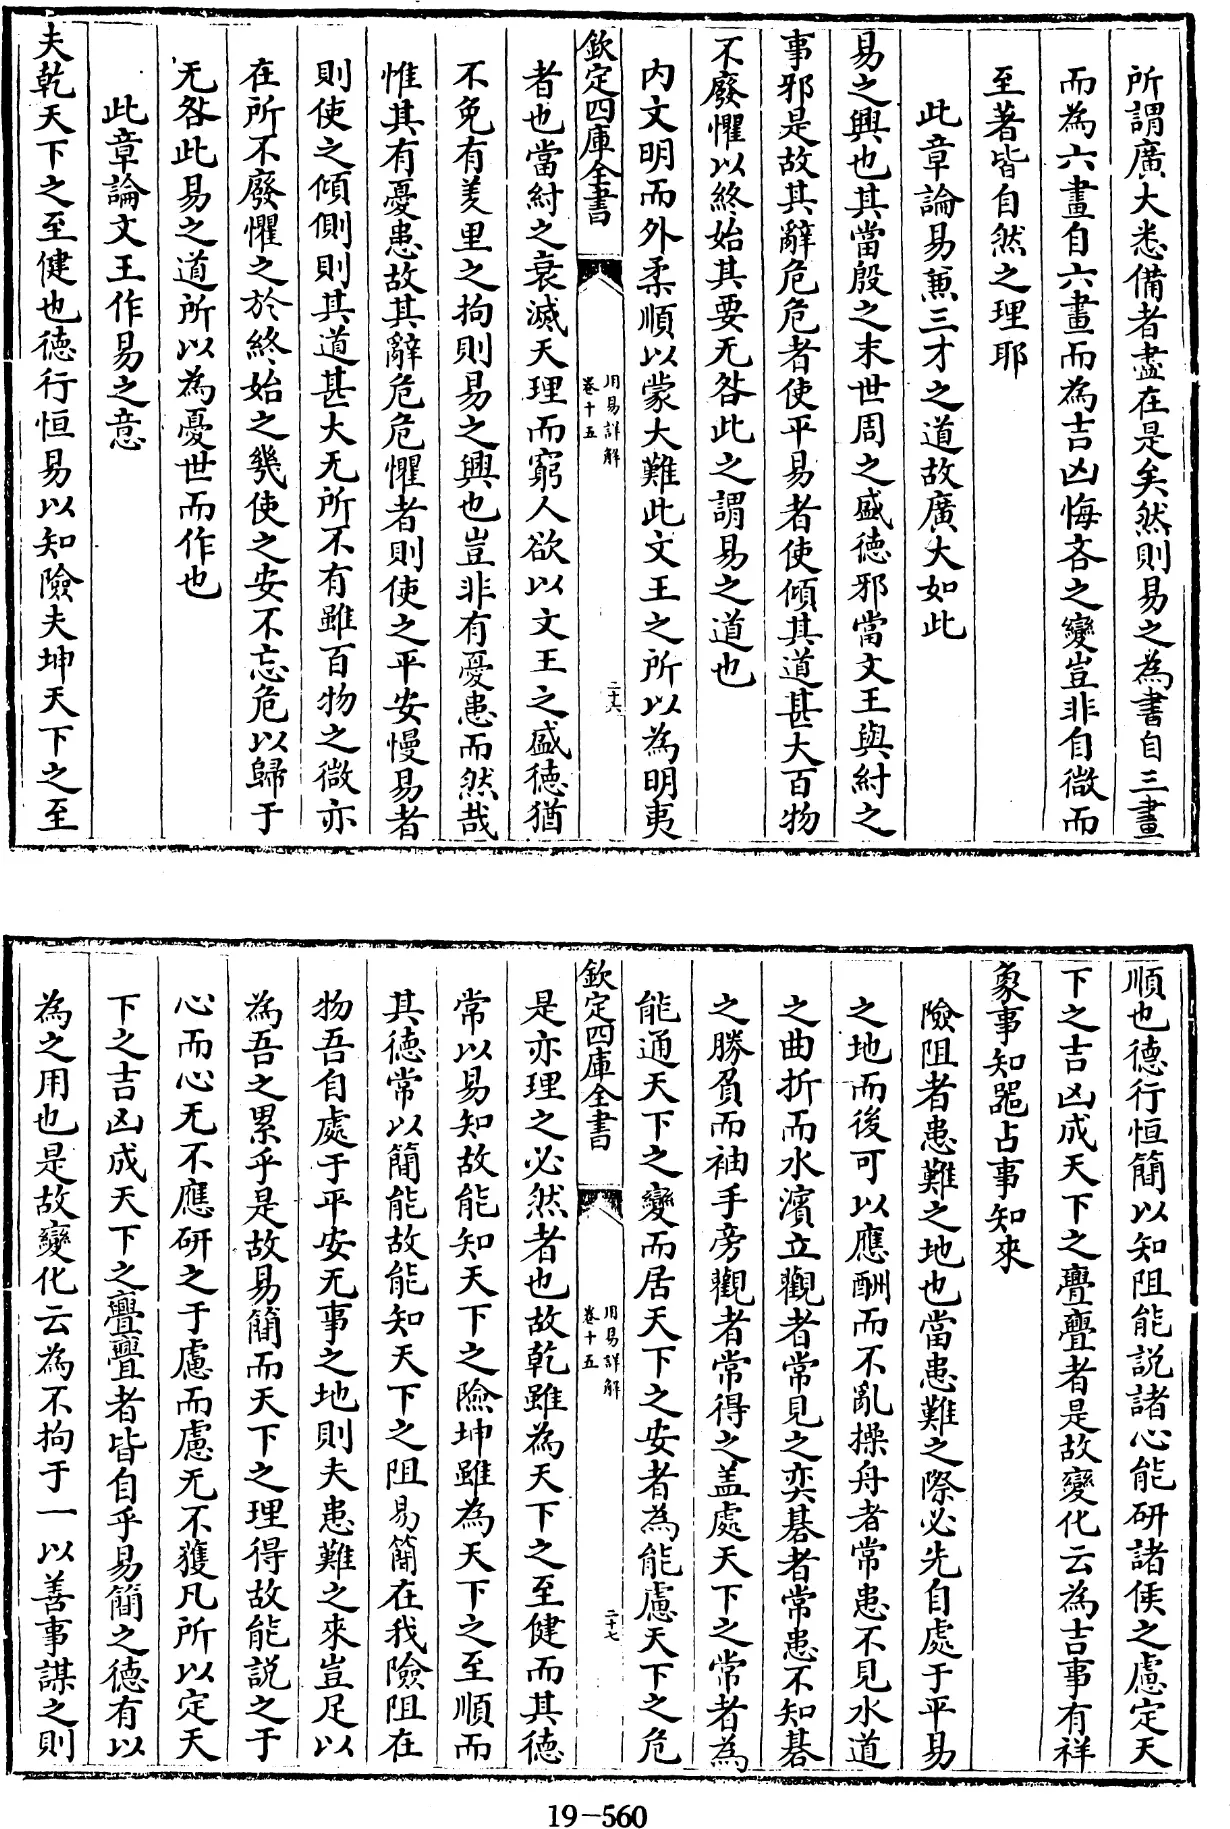 所謂廣大悉備者盡在是矣然則易之為書自三畫
而為六畫自六畫而為吉凶悔吝之變豈非自微而
至著皆自然之理耶
此章論易兼三才之道故廣大如此
易之興也其當殷之末世周之盛德邪當文王與紂之
事邪是故其辭危危者使平易者使傾其道甚大百物
不廢懼以終始其要无咎此之謂易之道也
内文明而外柔順以蒙大難此文王之所以為明夷
欽定四庫全書
用易詳解
卷十五
二十六
者也當紂之衰滅天理而窮人欲以文王之盛德猶
不免有羑里之拘則易之興也豈非有憂患而然哉
惟其有憂患故其辭危危懼者則使之平安慢易者
則使之傾側則其道甚大无所不有雖百物之微亦
在所不廢懼之於終始之幾使之安不忘危以歸于
无咎此易之道所以為憂世而作也
此章論文王作易之意
夫乾天下之至健也德行恒易以知險夫坤天下之至
順也德行恒簡以知阻能説諸心能研諸侯之慮定天
下之吉凶成天下之亹亹者是故變化云為吉事有祥
象事知器占事知來
險阻者患難之地也當患難之際必先自處于平易
之地而後可以應酬而不亂操舟者常患不見水道
之曲折而水濱立觀者常見之奕碁者常患不知碁
之勝負而袖手旁觀者常得之盖處天下之常者為
能通天下之變而居天下之安者為能慮天下之危
欽定四庫全書
用易詳解
卷十五
二十七
是亦理之必然者也故乾雖為天下之至健而其德
常以易知故能知天下之險坤雖為天下之至順而
其德常以簡能故能知天下之阻易簡在我險阻在
物吾自處于平安无事之地則夫患難之來豈足以
為吾之累乎是故易簡而天下之理得故能説之于
心而心无不應研之于慮而慮无不獲凡所以定天
下之吉凶成天下之亹亹者皆自乎易簡之德有以
為之用也是故變化云為不拘于一以善事謀之則
19-560